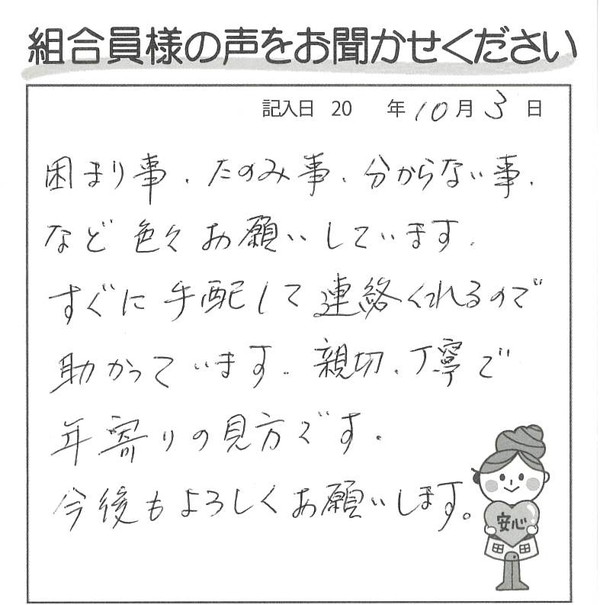 組合員様の声をお聞かせください
記入日 20 年 10月 3日
困まり事、たのみ事、分からない事、
など色々お願いしています。
すぐに手配して連絡くれるので
助かっています。親切、丁寧で
年寄りの見方です。
今後もよろしくお願いします。
安心